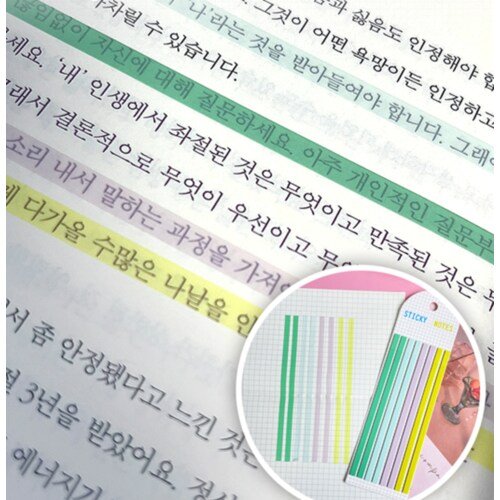 함과 싫음도 인정해야 합
그것이 어떤 욕망이든 인정하고
'나'라는 것을 받아들여야 합니다. 그래야
차릴 수 있습니다.
끊임없이 자신에 대해 질문하세요. 아주 개인적인 질문부
세요. '내' 인생에서 좌절된 것은 무엇이고 만족된 것은 무
그래서 결론적으로 무엇이 우선이고 무
소리 내서 말하는 과정을 가져
에 다가올 수많은 나날을 인
서 좀 안정됐다고 느낀 것은
절 3년을 받았어요. 정신
에너지가
STICKY NOTES